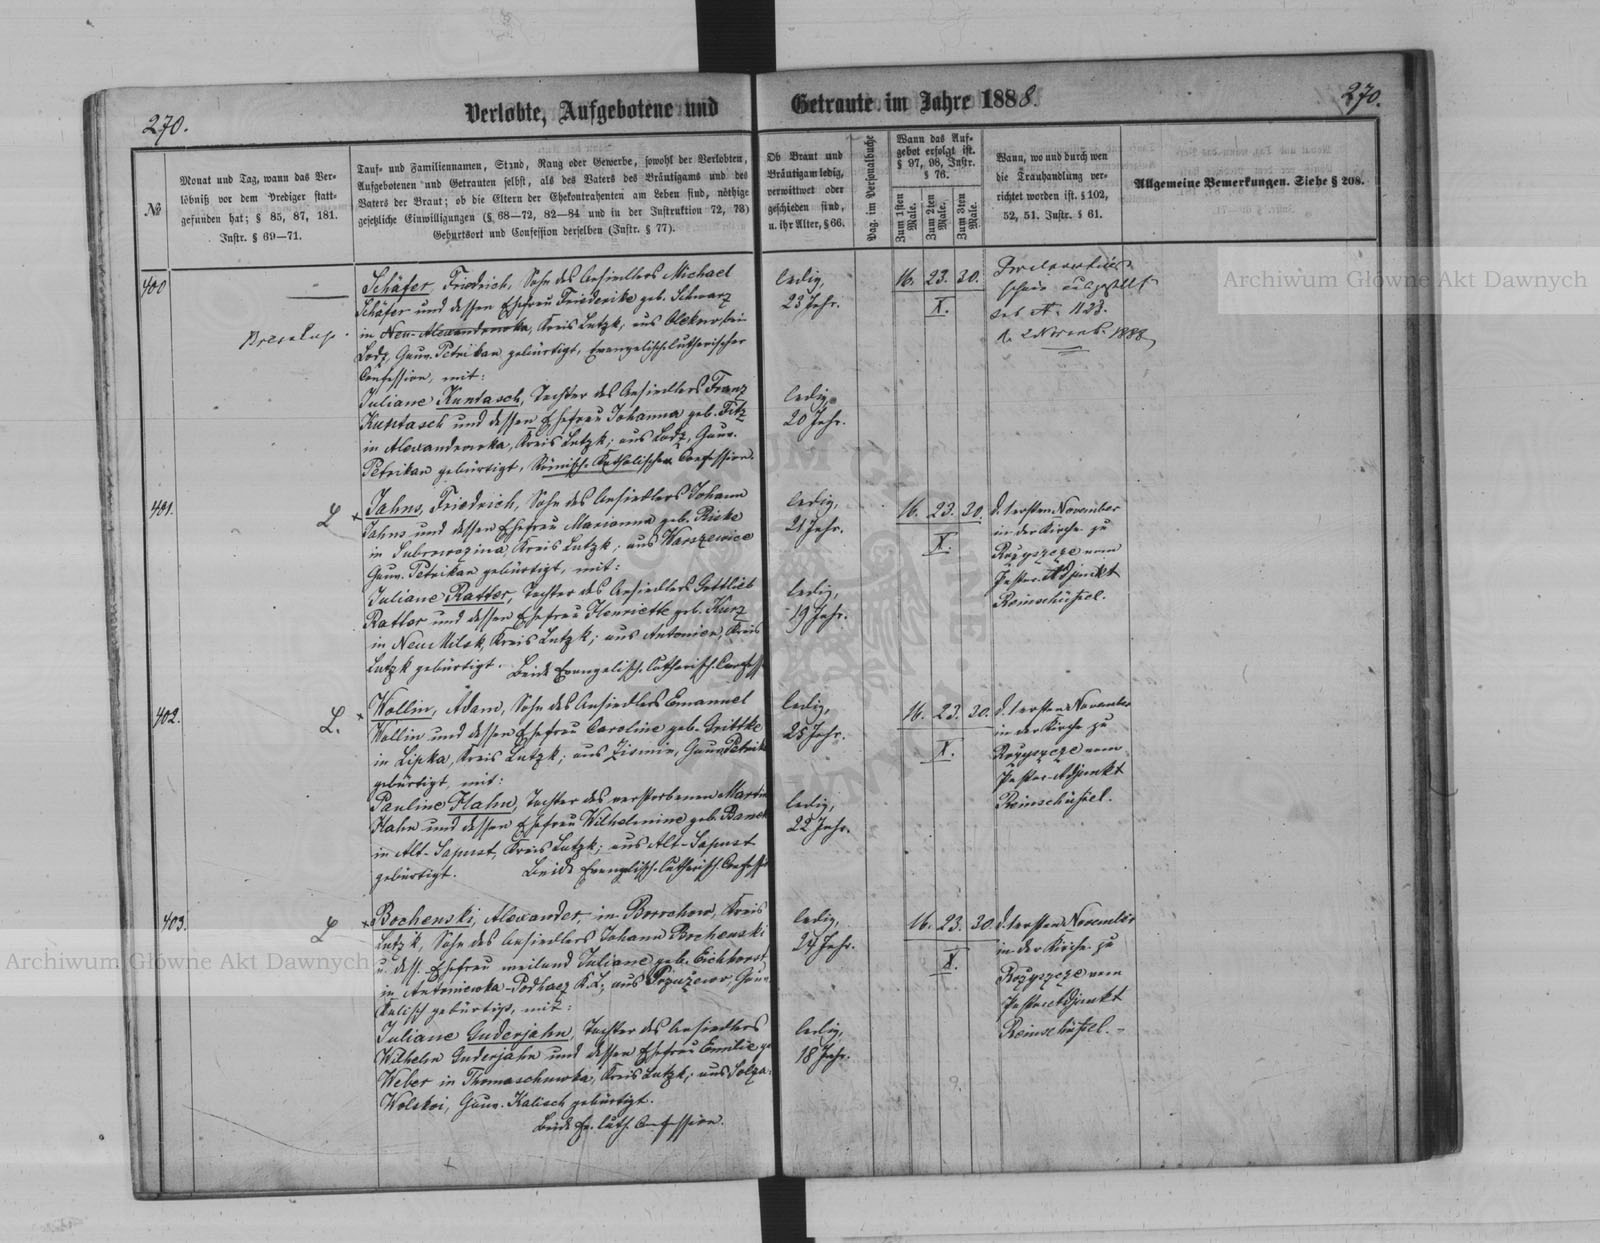 270.
Verlobte, Aufgebotene und
Getraute im Jahre 1888.
270.
№
Monat und Tag, wann das Ver-
löbniß vor dem Prediger statt-
gefunden hat; § 85, 87, 181.
Instr. § 69—71.
Tauf- und Familiennamen, Stand, Rang oder Gewerbe, sowohl der Verlobten,
Aufgebotenen und Getrauten selbst, als des Vaters des Bräutigams und des
Vaters der Braut; ob die Eltern der Ehekontrahenten am Leben sind, nöthige
gesetzliche Einwilligungen (§ 68—72, 82—84 und in der Instruktion 72, 73)
Geburtsort und Confession derselben (Instr. § 77).
Ob Braut und
Bräutigam ledig,
verwittwet oder
geschieden sind,
u. ihr Alter, § 66.
Pag. im Personalbuche
Wann das Auf-
gebot erfolgt ist.
§ 97, 98, Instr.
§ 76.
Zum 1sten
Male.
Zum 2ten
Male.
Zum 3ten
Male.
Wann, wo und durch wen
die Trauhandlung ver-
richtet worden ist. § 102,
52, 51. Instr. § 61.
Allgemeine Bemerkungen. Siehe § 208.
400
Schäfer, Friedrich, Sohn des Ansiedlers Michael
Schäfer und dessen Ehefrau Friederike geb. Schwarz
in Neu-Alexandrowka, Kreis Lutzk; aus bei
Lodz, Gouv. Petrikau gebürtigt, Evangelisch-Lutherischer
Confession, mit:
Juliane Kuntasch, Tochter des Ansiedlers Franz
Kuntasch und dessen Ehefrau Johanna geb. Fitz
in Alexandrowka, Kreis Lutzk; aus Lodz, Gouv.
Petrikau gebürtigt, Römisch-Katholischer Confession.
ledig,
23 Jahr.
ledig,
20 Jahr.
16. 23. 30.
X.
schein ausgestellt
sub № 1123.
d. 2 Novemb. 1888
401.
L
Jahns, Friedrich, Sohn des Ansiedlers Johann
Jahns und dessen Ehefrau Marianna geb. Rieke
in Kreis Lutzk; aus Warszewice
Gouv. Petrikau gebürtigt, mit:
Juliane Ratter, Tochter des Ansiedlers Gottlieb
Ratter und dessen Ehefrau Henriette geb. Kurz
in Neu Milsk, Kreis Lutzk; aus Antonien, Kreis
Lutzk gebürtigt. Beide Evangelisch-Lutherisch. Confess.
ledig,
21 Jahr.
ledig,
19 Jahr.
16. 23. 30.
X.
d. 1ersten November
in der Kirche zu
Rozyszcze vom
Pastor-Adjunkt
Reinschüssel.
402.
L.
Wollin, Adam, Sohn des Ansiedlers Emanuel
Wollin und dessen Ehefrau Caroline geb. Grittke
in Lipka, Kreis Lutzk; aus Gouv. Petrik
gebürtigt, mit:
Pauline Hahn, Tochter des verstorbenen Martin
Hahn und dessen Ehefrau Wilhelmine geb.
in Alt-Sapust, Kreis Lutzk; aus Alt-Sapust
gebürtigt. Beide Evangelisch-Lutherisch. Confess
ledig,
25 Jahr.
ledig,
22 Jahr.
16. 23. 30.
X.
d. 1ersten November
in der Kirche zu
Rozyszcze vom
Pastor-Adjunkt
Reinschüssel.
403.
L
Bochenski, Alexander, in Borochow, Kreis
Lutzk, Sohn des Ansiedlers Johann Bochenski
u. dess. Ehefrau weiland Juliane geb. Eichhorst
in Antoniewka-Podhaez K. L.; aus Gouv.
Kalisch gebürtigt, mit:
Juliane Guderjahn, Tochter des Ansiedlers
Wilhelm Guderjahn und dessen Ehefrau Emilie ge
Weber in Thomaschewka, Kreis Lutzk; aus
Wolskoi, Gouv. Kalisch gebürtigt.
Beide Ev. luth. Confession.
ledig,
24 Jahr.
ledig,
18 Jahr.
16. 23. 30.
X.
d. 1ersten November
in der Kirche zu
Rozyszcze vom
Pastor Adjunkt
Reinschüssel.
Archiwum Główne Akt Dawnych
Archiwum Główne Akt Dawnych